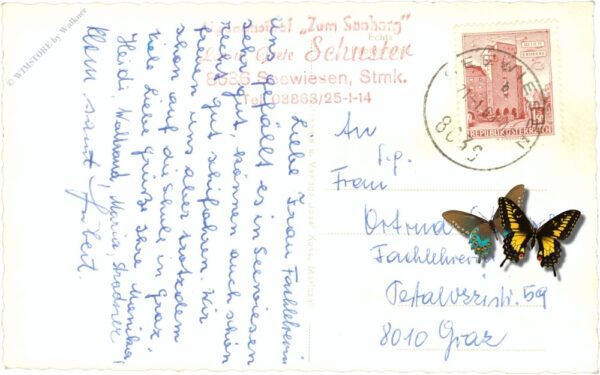 © WIMSTORE by Walkner
"Zum Seeberg"
Grete Schuster
8636 Seewiesen, Stmk.
Tel. 03863/25-1-14
Liebe Frau Fachlehrerin
Uns gefällt es in Seewiesen
sehr gut, können auch schon
recht gut skifahren. Wir
freuen uns aber trotzdem
schon auf die Schule in Graz.
Viele liebe Grüße Ihre Monika,
Heidi, Waltraud, Maria,
Klem. samt Hubert.
SEEWIESEN
8636
REPUBLIK ÖSTERREICH
An
Frau
Ortrud
Fachlehrerin
Pestalozzistr. 59
8010 Graz